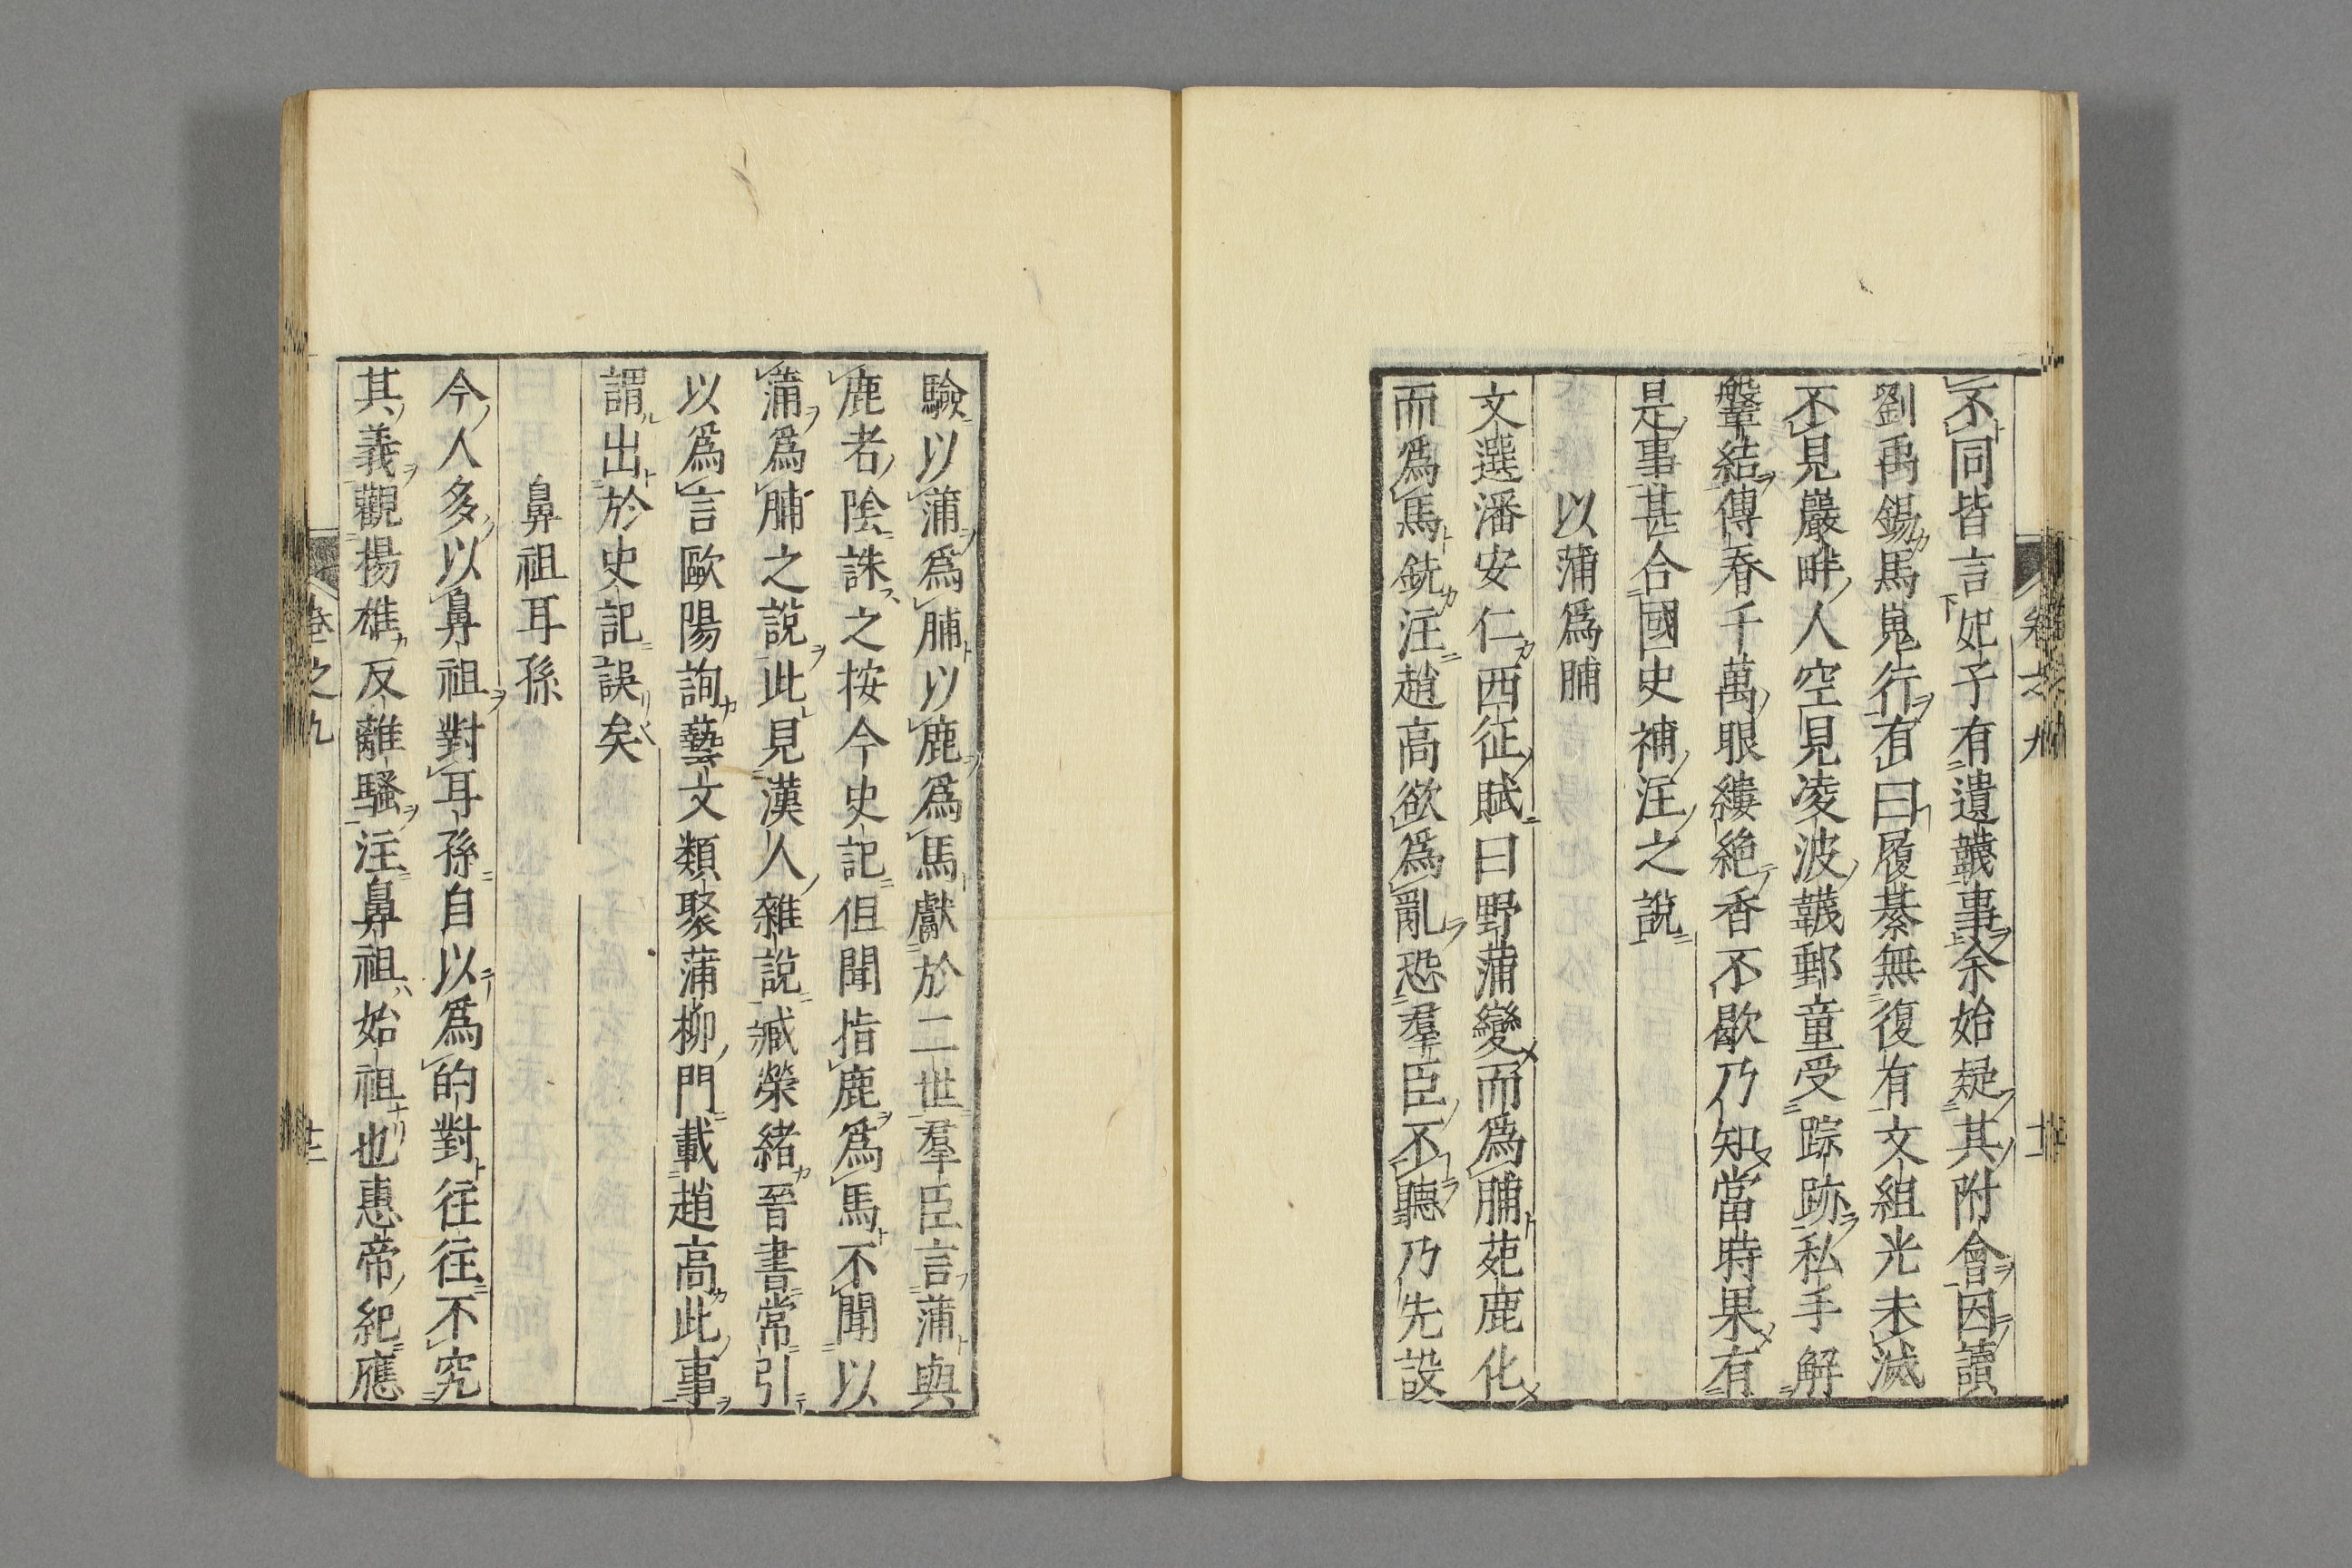 不同皆言妃子有遺韈事余始疑其附會因讀
劉禹錫馬嵬行有曰履綦無復有文組光未滅
不見巖畔人空見凌波韈郵童受踪跡私手解
鞶結傳看千萬眼縷絶香不歇乃知當時果有
是事甚合國史補注之說
以蒲爲脯
文選潘安仁西征賦曰野蒲變而爲脯苑鹿化
而爲馬銑注趙高欲爲亂恐羣臣不聽乃先設
驗以蒲爲脯以鹿爲馬獻於二世羣臣言蒲與
鹿者陰誅之按今史記但聞指鹿爲馬不聞以
蒲爲脯之說此見漢人雜說臧榮緒晉書常引
以爲言歐陽詢藝文類聚蒲柳門載趙高此事
謂出於史記誤矣
鼻祖耳孫
今人多以鼻祖對耳孫自以爲的對往往不究
其義觀揚雄反離騷注鼻祖始祖也惠帝紀應
卷之九
十二